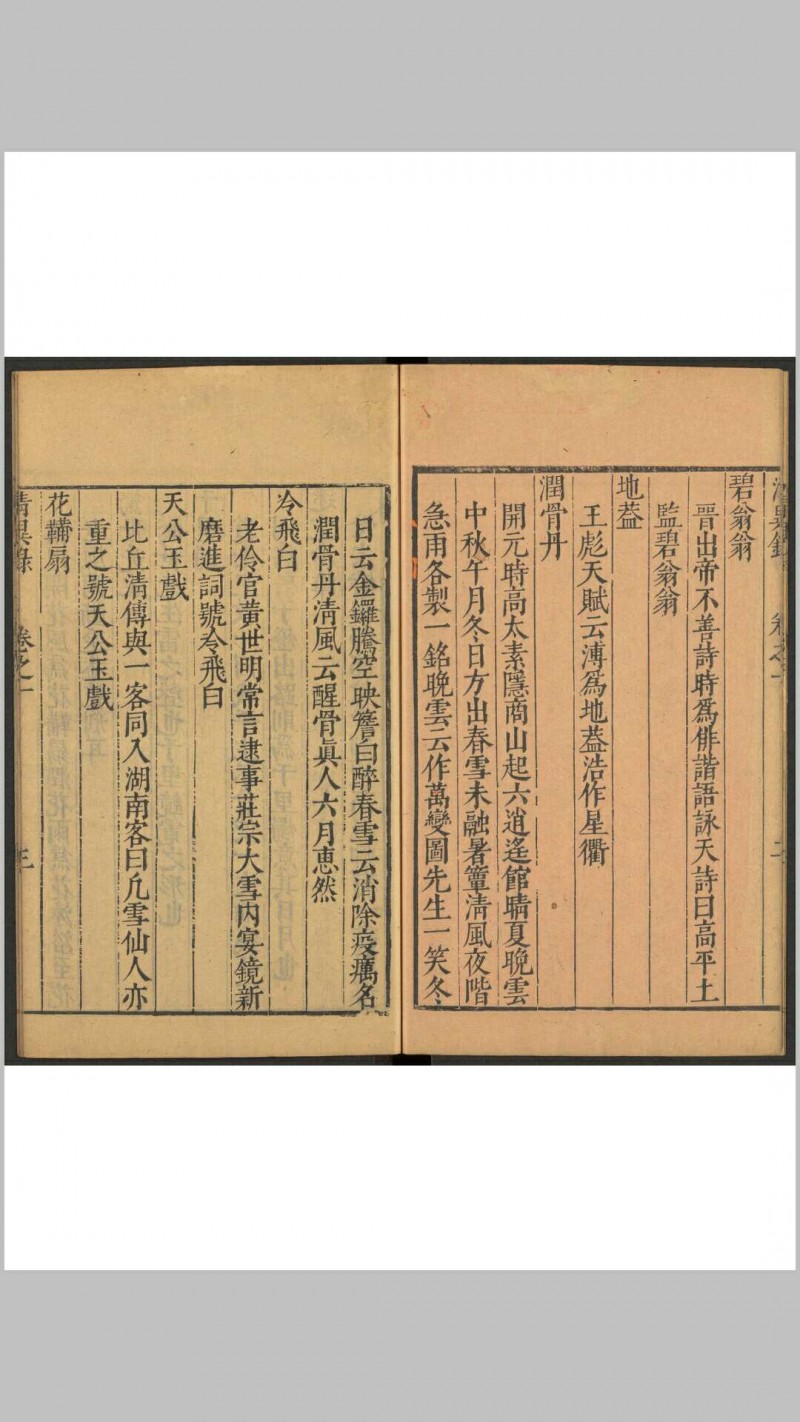 碧翁翁
晉出帝不善詩時爲俳諧語詠天詩曰高平土
監碧翁翁
地葢
王彪天賦云溥爲地葢浩作星衢
潤骨丹
開元時高太素隱商山起六逍遙館晴夏晚雲
中秋午月冬日方出春雪未融暑簟清風夜階
急雨各製一銘晚雲云作萬變圖先生一笑冬
日云金鑼騰空映簷白醉春雪云消除疫癘名
潤骨丹清風云醒骨眞人六月惠然
冷飛白
老伶官黃世明常言逮事莊宗大雪内宴鏡新
磨進詞號冷飛白
天公玉戲
比丘清傳與一客同入湖南客曰凢雪仙人亦
重之號天公玉戲
花鞴扇
清異錄 卷之一 三